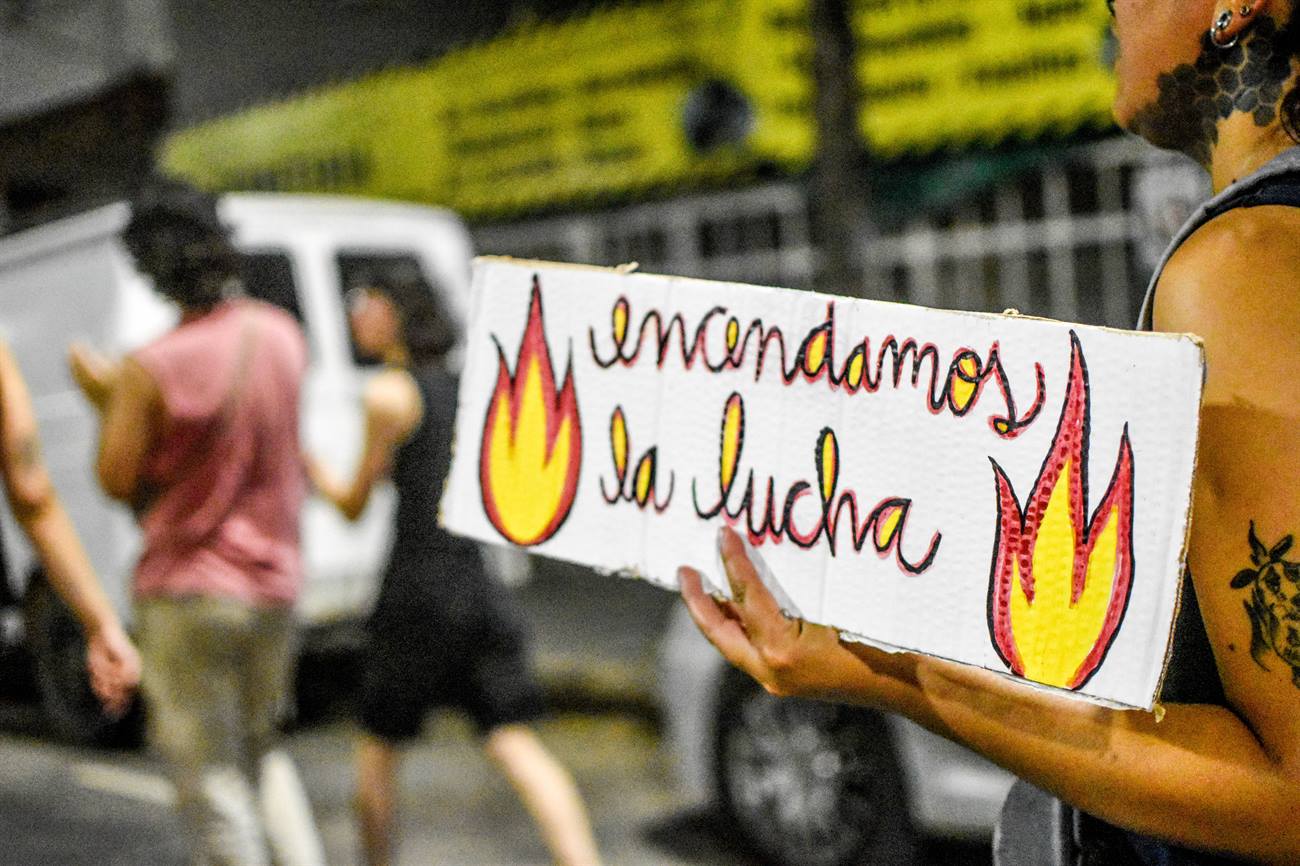 encendamos
la lucha